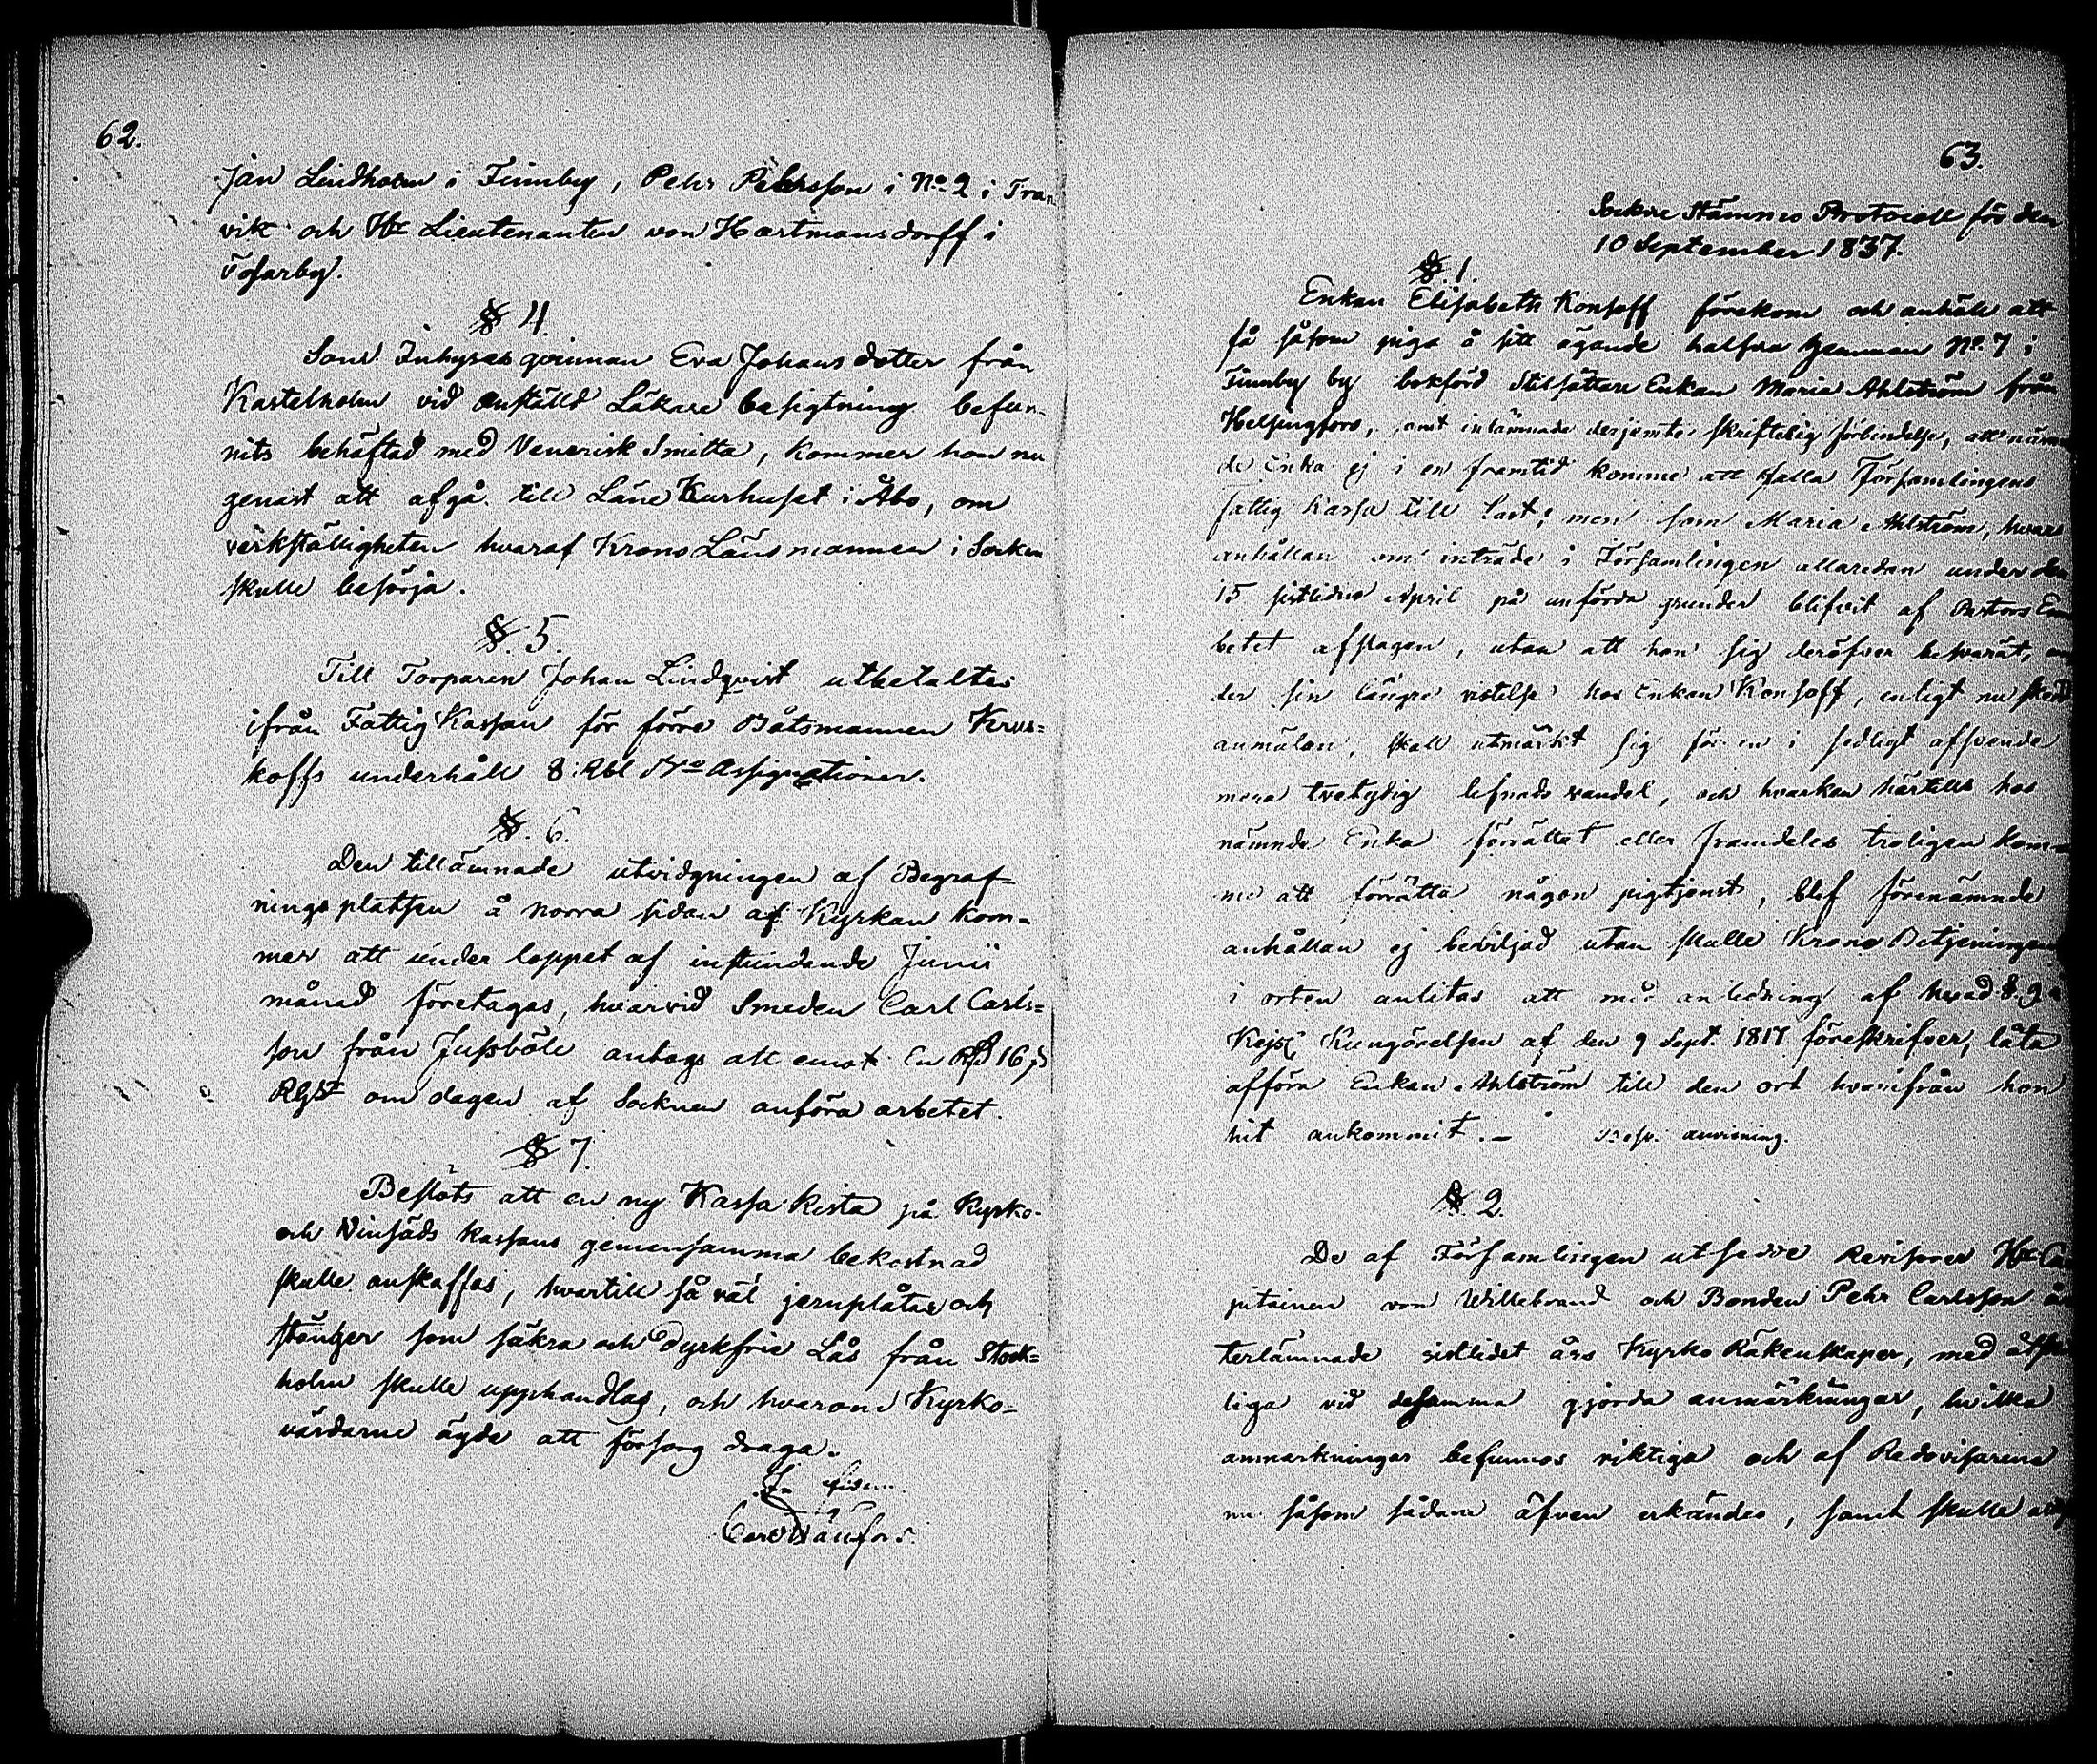 62.
jan Lindholm i Finnby, Pehr Pehrsson i No 2 i Tran
vik och Hr Lieutenanten von Hartmansdorff i
Tosarby.
§ 4.
Som Inhyses qvinnan Eva Johansdotter från
Kastelholm vid anställd Läkare besigtning befun-
nits behäftad med Venerisk Smitta, kommer hon nu
genast att afgå till Läne Kurhuset i Åbo, om
verkställigheten hvaraf Krono Länsmannen i Socken
skulle besörja.
§. 5.
Till Torparen Johan Lindqvist utbetaltes
ifrån Fattig Kassan för förre Båtsmannen Krus=
koffs underhåll 8 Rbl Bco Assignationer.
§. 6.
Den tillämnade utvidgningen af Begraf=
ningsplatsen å norra sidan af Kyrkan kom-
mer att under loppet af instundande Junii
månad företagas, hvarvid Smeden Carl Carls=
son från Jussböle antogs att emot En Rd 16 s
Rgst om dagen af Socknen anföra arbetet.
§ 7.
Beslöts att en ny Kassa Kista på Kyrko-
och Vinsäds kassans gemensamma bekostnad
skulle anskaffas, hvartill så väl jernplåtar och
stänger som säkra och dyrkfrie Lås från Stock=
holm skulle upphandlas, och hvarom Kyrko=
värdarne ägde att försorg draga.
In fidem
Carl Dänfors.
63.
Sockne Stämnes Protocoll för den
10 September 1837.
§. 1.
Enkan Elisabeth Konsoff förekom och anhöll att
få såsom piga å sitt ägande halfva hemman No 7 i
Finnby by bokförd Stilsättare Enkan Maria Ahlström från
Helsingfors, samt inlämnade derjemte skriftelig förbindelse, att nämn
de Enka ej i en framtid komme att falla Församlingens
fattig Kassa till last; men som Maria Ahlström, hvars
anhållan om inträde i Församlingen allaredan under den
15 sistlidne April på anförda grunder blifvit af Pastors Em
betet afslagen, utan att hon sig deröfver besvärat, un
der sin längre vistelse hos Enkan Konsoff, enligt nu skedd
anmälan, skall utmärkt sig för en i sedligt afseende
mera tvetydig lefnads vandel, och hvarken härtills hos
nämnde Enka förrättat eller framdeles troligen kom-
me att förrätta någon pigtjenst, blef förenämnde
anhållan ej beviljad utan skulle Krono Betjeningen
i orten anlitas att med anledning af hvad 8. 9
Kejsl Kungörelsen af den 9 Sept. 1817 föreskrifver, låta
afföra Enkan Ahlström till den ort hvarifrån hon
hit ankommit. – Besv. anvisning.
§. 2.
De af Församlingen utsedde Revisorer Hr Ca
pitainen von Willebrand och Bonden Pehr Carlsson åt
terlämnade sistlidet års Kyrko Räkenskaper, med åtski
liga vid desamma gjorda anmärkningar, hvilka
anmärkningar befunnos riktiga och af Redovisarena
nu såsom sådane äfven erkändes, samt skulle